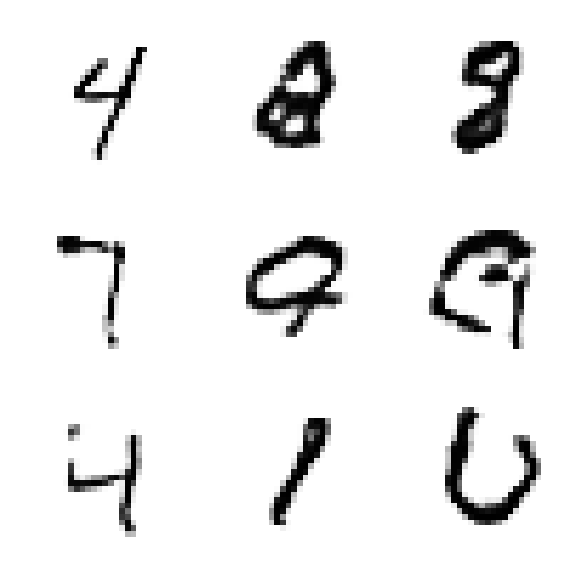 4 8 8
7 9 9
4 1 0